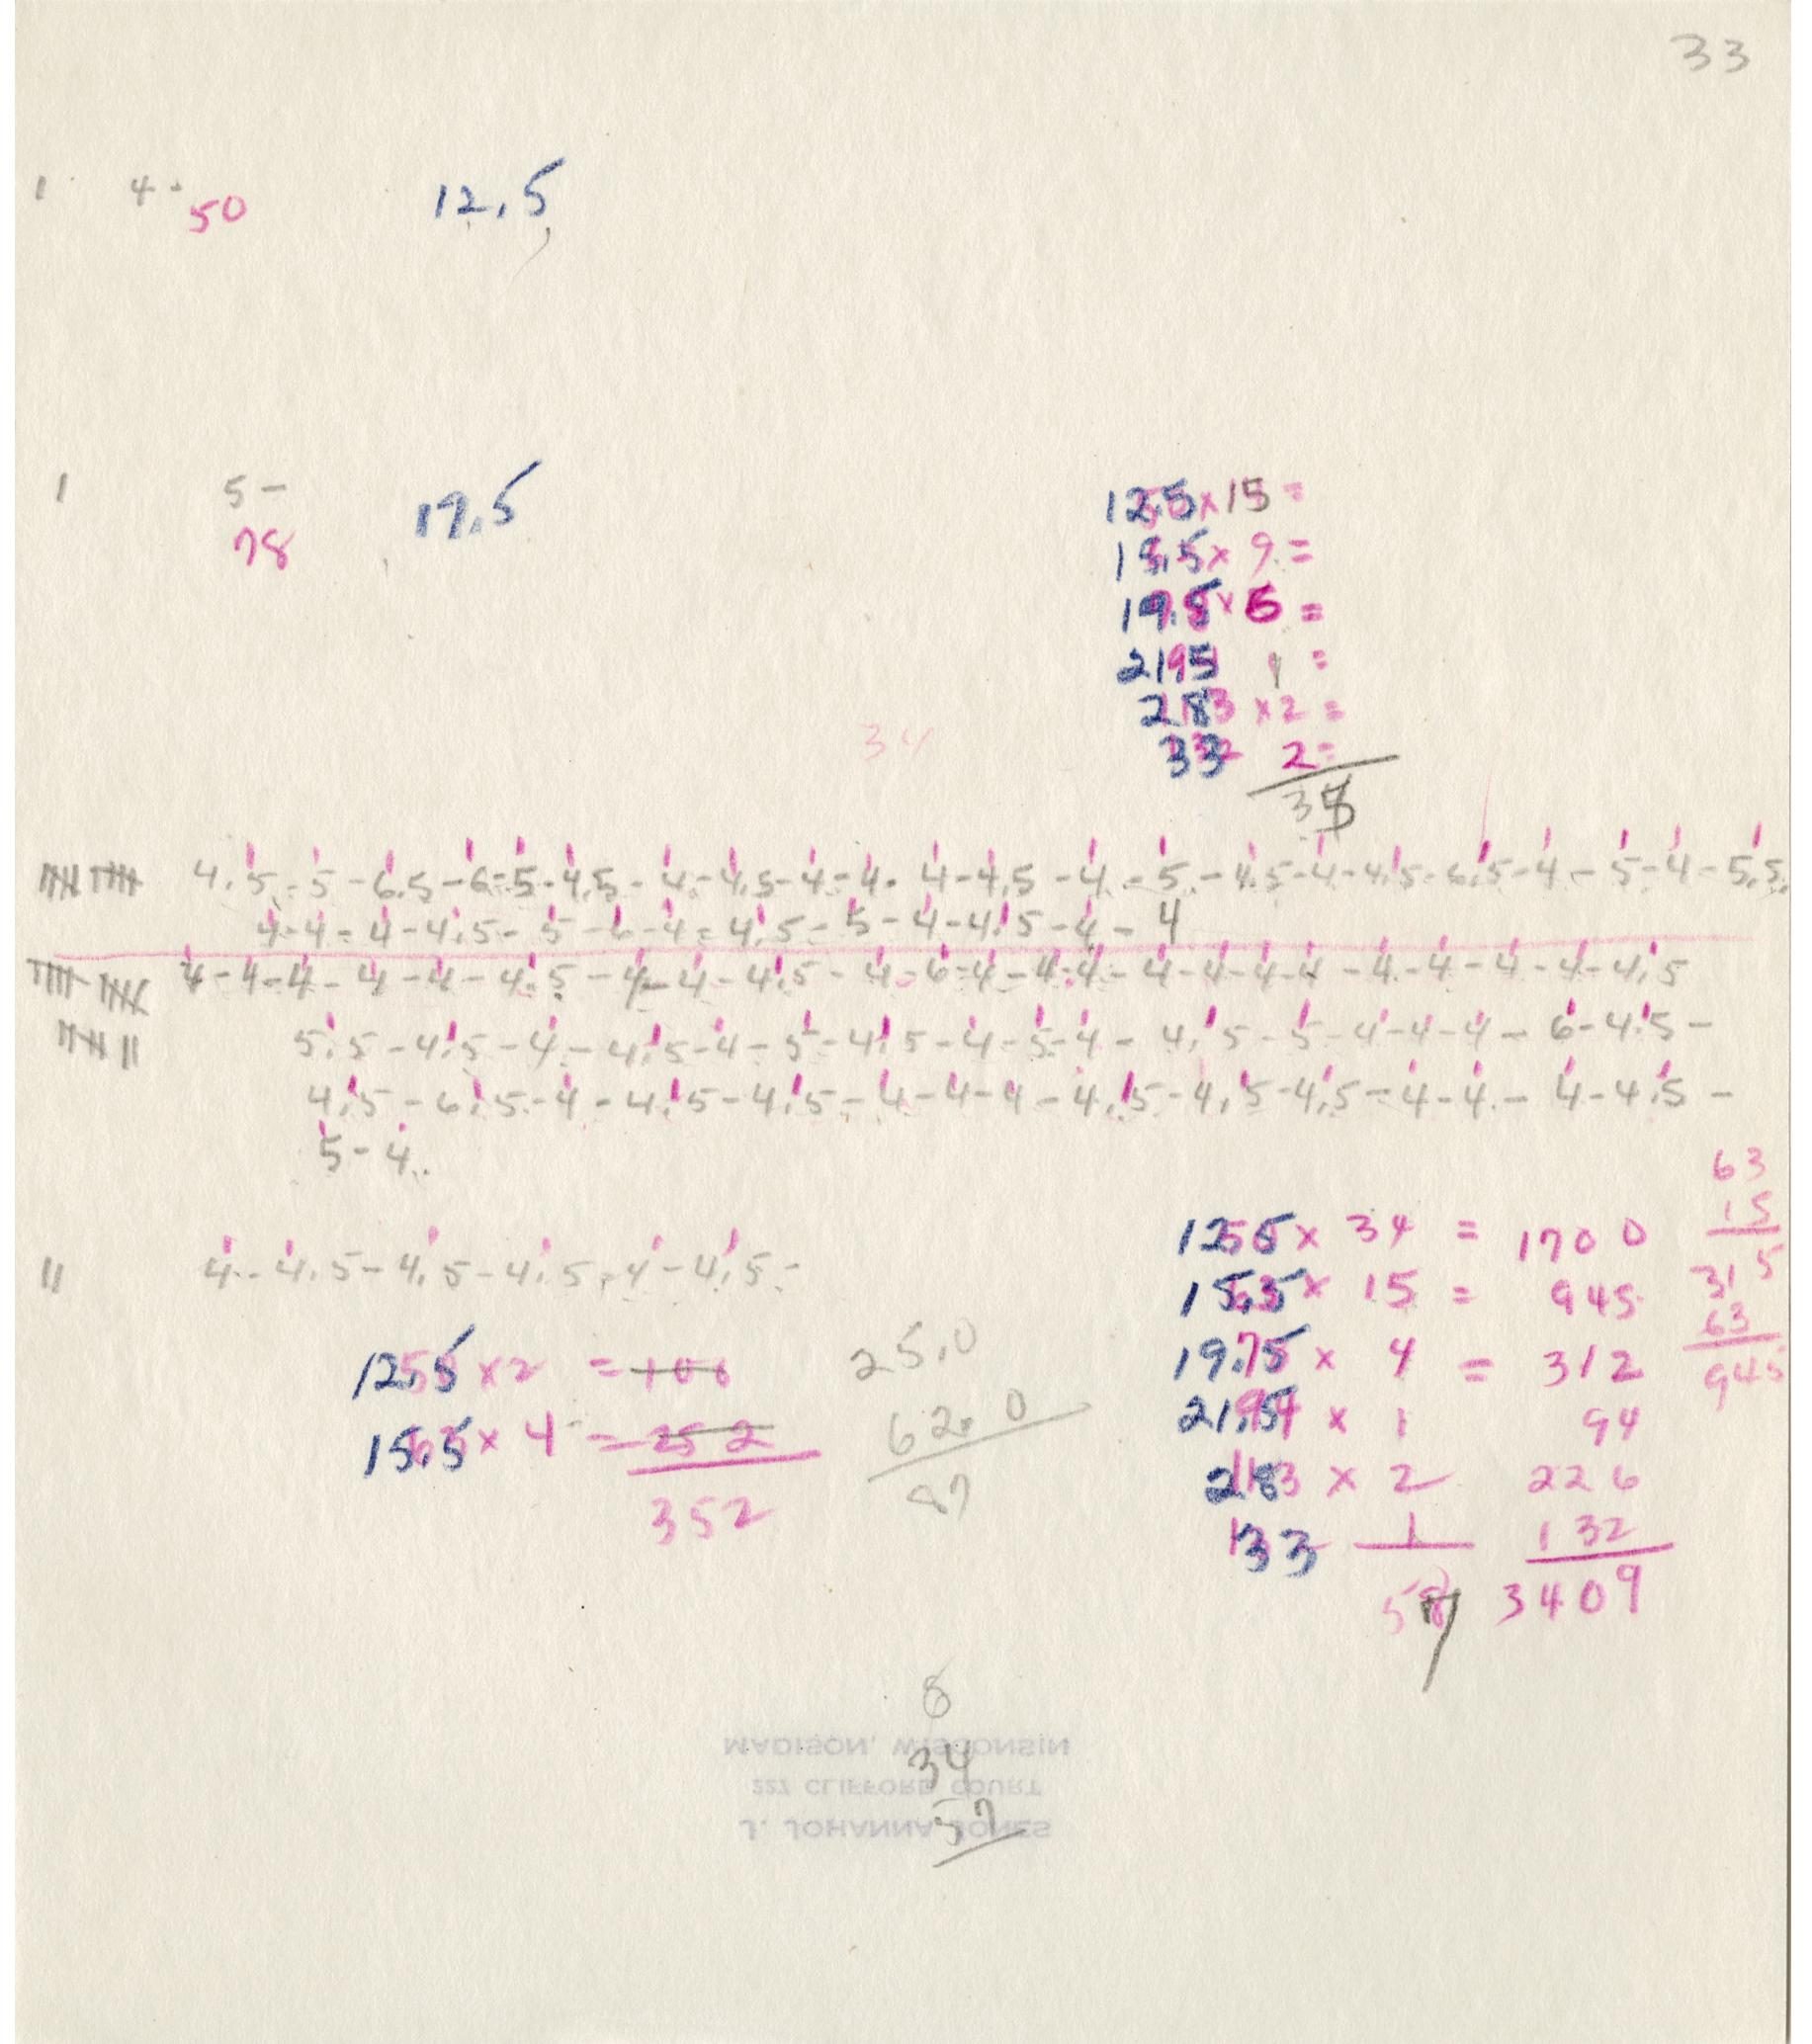 33
1 4-
50 12.5
1 5- 19.5
78
12.5 x 15 =
15.5 x 9 =
19.5 x 6 =
21.5 1 =
28 x 2 =
33 2 =
34
4.5 - 5 - 6.5 - 6 - 5 - 4.5 - 4 - 4.5 - 4 - 4 - 4 - 4.5 - 4 - 5 - 4.5 - 4 - 4.5 - 6.5 - 4 - 5 - 4 - 5.5
4 - 4 - 4 - 4.5 - 5 - 6 - 4 - 4.5 - 5 - 4 - 4.5 - 4 - 4
4 - 4 - 4 - 4 - 4 - 4.5 - 4 - 4 - 4.5 - 4 - 6 - 4 - 4 - 4 - 4 - 4 - 4 - 4 - 4 - 4 - 4 - 4 - 4.5
5.5 - 4.5 - 4 - 4.5 - 4 - 5 - 4.5 - 4 - 5 - 4 - 4.5 - 5 - 4 - 4 - 4 - 6 - 4.5 -
4.5 - 6.5 - 4 - 4.5 - 4.5 - 4 - 4 - 4 - 4.5 - 4.5 - 4.5 - 4 - 4 - 4 - 4.5 -
5 - 4..
11 4 - 4.5 - 4.5 - 4.5 - 4 - 4.5 -
12.5 x 2 = 100
15.5 x 4 = 252
352
25.0
62.0
87
12.5 x 34 = 1700
15.5 x 15 = 945
19.5 x 4 = 312
21.5 x 1 94
28 x 2 226
33 1 132
57 3409
63
15
315
63
945
6
34
57
J. JOHANNA JONES
227 CLIFFORD COURT
MADISON, WISCONSIN